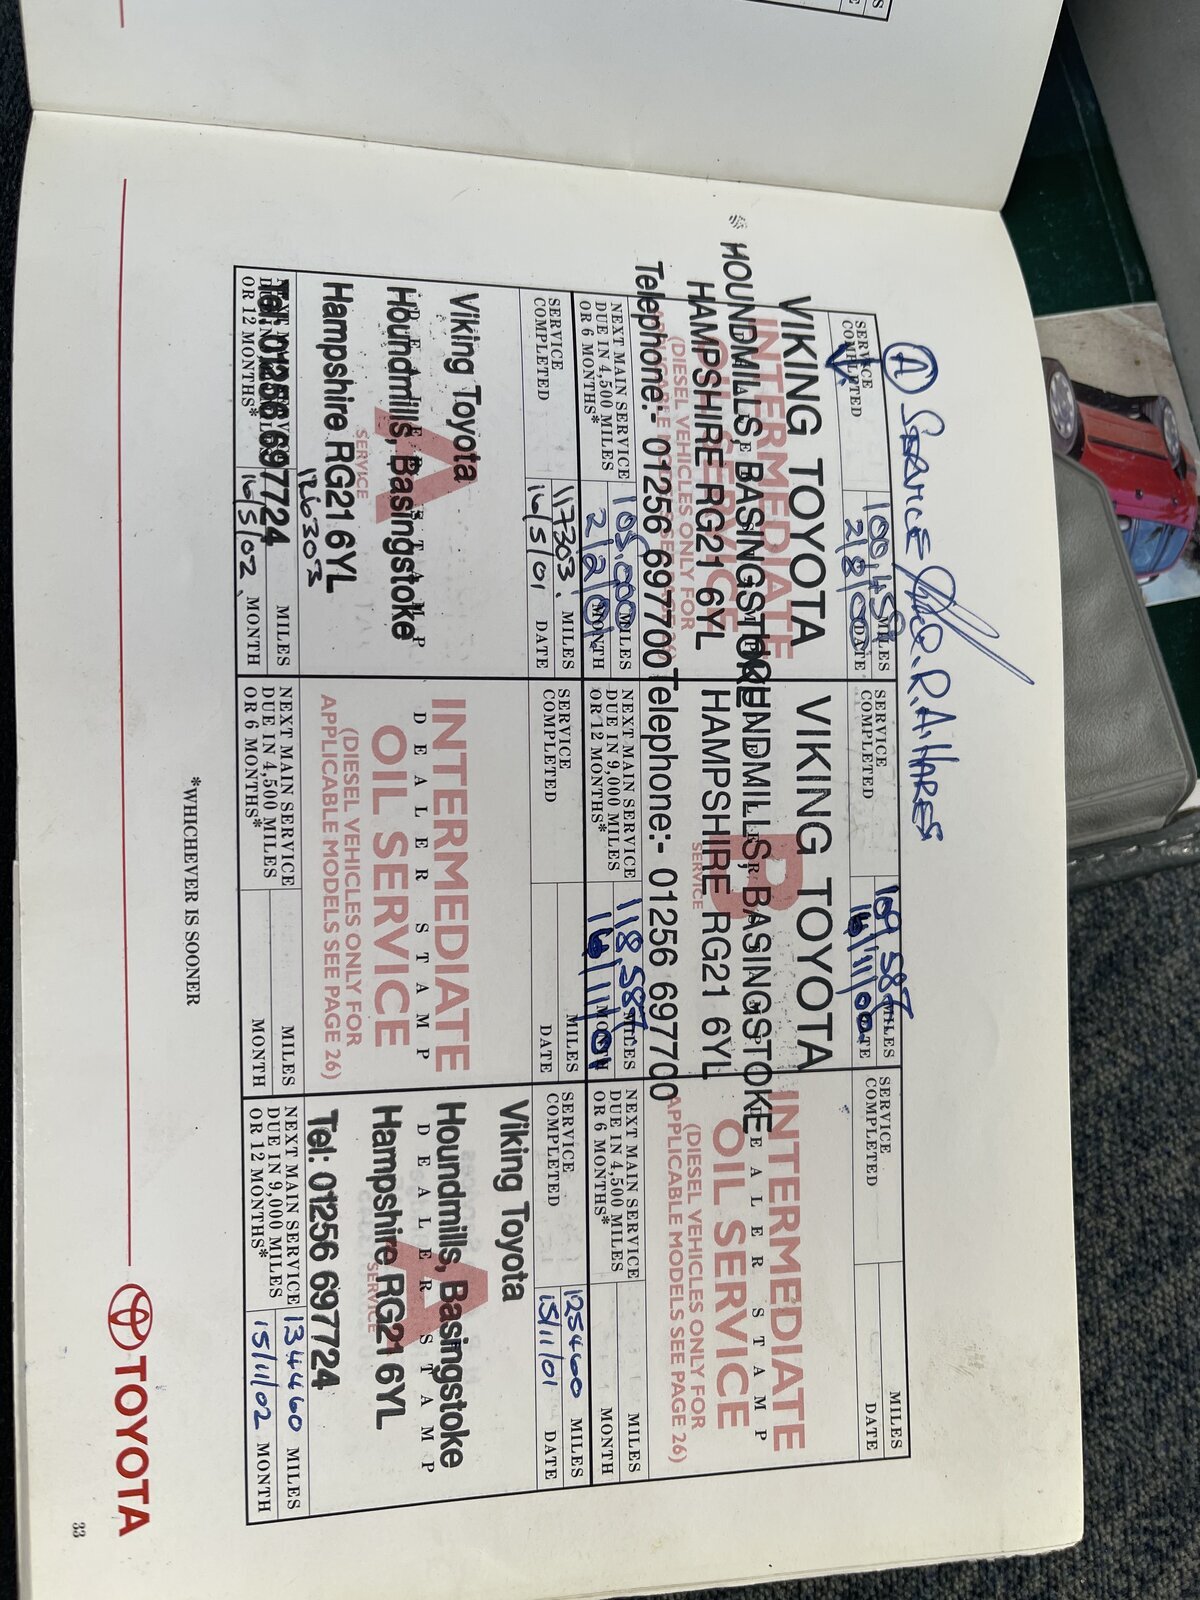 Ⓐ SERVICE R.A. HARES
SERVICE
COMPLETED
MILES
2/8/00 DATE
VIKING TOYOTA
INTERMEDIATE
OIL SERVICE
HOUNDMILLS, BASINGSTOKE
HAMPSHIRE RG21 6YL
(DIESEL VEHICLES ONLY FOR
Telephone:- 01256 697700
NEXT MAIN SERVICE
DUE IN 4,500 MILES
OR 6 MONTHS*
MILES
2/2/01 MONTH
SERVICE
COMPLETED
109,587 MILES
16/11/00 DATE
VIKING TOYOTA
B
SERVICE
HOUNDMILLS, BASINGSTOKE
HAMPSHIRE RG21 6YL
Telephone:- 01256 697700
NEXT MAIN SERVICE
DUE IN 9,000 MILES
OR 12 MONTHS*
118,587 MILES
16/11/01 MONTH
SERVICE
COMPLETED
MILES
DATE
INTERMEDIATE
DEALER STAMP
OIL SERVICE
(DIESEL VEHICLES ONLY FOR
APPLICABLE MODELS SEE PAGE 26)
NEXT MAIN SERVICE
DUE IN 4,500 MILES
OR 6 MONTHS*
MILES
MONTH
SERVICE
COMPLETED
117303 MILES
16/5/01 DATE
Viking Toyota
A
DEALER STAMP
Houndmills, Basingstoke
SERVICE
Hampshire RG21 6YL
Tel: 01256 697724
OR 12 MONTHS*
126303 MILES
16/5/02 MONTH
SERVICE
COMPLETED
MILES
DATE
INTERMEDIATE
DEALER STAMP
OIL SERVICE
(DIESEL VEHICLES ONLY FOR
APPLICABLE MODELS SEE PAGE 26)
NEXT MAIN SERVICE
DUE IN 4,500 MILES
OR 6 MONTHS*
MILES
MONTH
SERVICE
COMPLETED
125460 MILES
15/11/01 DATE
Viking Toyota
A
Houndmills, Basingstoke
DEALER STAMP
Hampshire RG21 6YL
SERVICE
Tel: 01256 697724
NEXT MAIN SERVICE
DUE IN 9,000 MILES
OR 12 MONTHS*
134460 MILES
15/11/02 MONTH
*WHICHEVER IS SOONER
TOYOTA
33